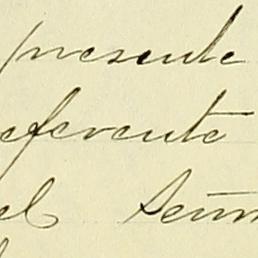 presente
eferente
el Señ